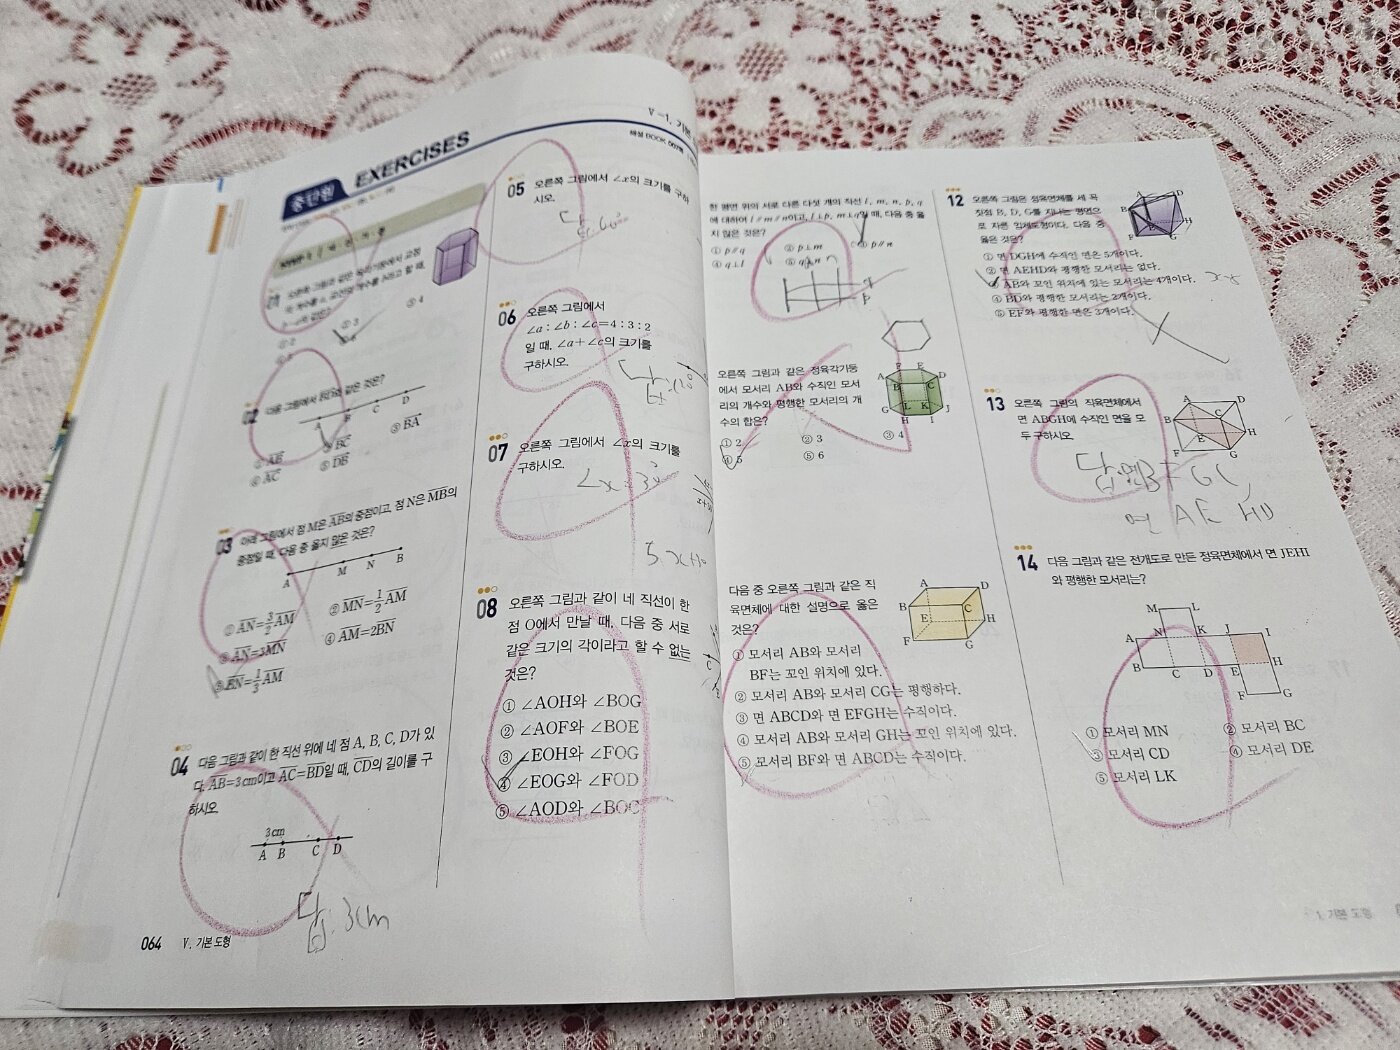 중단원
EXERCISES
V-1. 기본
해설 BOOK
② 3
⑤ 4
02
다음 그림에서
같은 것은?
A
C
D
③ BA
⑤ DB
④ AC
03
아래 그림에서 점 M은 AB의 중점이고, 점 N은 MB의
중점일 때, 다음 중 옳지 않은 것은?
A
M
N
B
① AN=3/2AM
② MN=1/2AM
③ AN=3MN
④ AM=2BN
⑤ BN=1/3AM
04
다음 그림과 같이 한 직선 위에 네 점 A, B, C, D가 있
다. AB=3 cm이고 AC=BD일 때, CD의 길이를 구
하시오.
3 cm
A B C D
답: 3cm
064 V. 기본 도형
05
오른쪽 그림에서 ∠x의 크기를 구하
시오.
답: 60°
06
오른쪽 그림에서
∠a : ∠b : ∠c=4 : 3 : 2
일 때, ∠a+∠c의 크기를
구하시오.
07
오른쪽 그림에서 ∠x의 크기를
구하시오.
08
오른쪽 그림과 같이 네 직선이 한
점 O에서 만날 때, 다음 중 서로
같은 크기의 각이라고 할 수 없는
것은?
① ∠AOH와 ∠BOG
② ∠AOF와 ∠BOE
③ ∠EOH와 ∠FOG
④ ∠EOG와 ∠FOD
⑤ ∠AOD와 ∠BOC
한 평면 위의 서로 다른 다섯 개의 직선 l, m, n, p, q
에 대하여 l∥m∥n이고, l⊥p, m⊥q일 때, 다음 중 옳
지 않은 것은?
① p∥q
② p⊥m
③ p∥n
④ q⊥l
⑤ q⊥n
오른쪽 그림과 같은 정육각기둥
에서 모서리 AB와 수직인 모서
리의 개수와 평행한 모서리의 개
수의 합은?
F E
A D
B C
G L K J
H I
① 2
② 3
③ 4
④ 5
⑤ 6
다음 중 오른쪽 그림과 같은 직
육면체에 대한 설명으로 옳은
것은?
A D
B C
E H
F G
① 모서리 AB와 모서리
BF는 꼬인 위치에 있다.
② 모서리 AB와 모서리 CG는 평행하다.
③ 면 ABCD와 면 EFGH는 수직이다.
④ 모서리 AB와 모서리 GH는 꼬인 위치에 있다.
⑤ 모서리 BF와 면 ABCD는 수직이다.
12
오른쪽 그림은 정육면체를 세 꼭
짓점 B, D, G를 지나는 평면으
로 자른 입체도형이다. 다음 중
옳은 것은?
A D
B
H
F E G
① 면 DGH에 수직인 면은 5개이다.
② 면 AEHD와 평행한 모서리는 없다.
③ AB와 꼬인 위치에 있는 모서리는 4개이다.
④ BD와 평행한 모서리는 2개이다.
⑤ EF와 평행한 면은 3개이다.
13
오른쪽 그림의 직육면체에서
면 ABGH에 수직인 면을 모
두 구하시오.
A D
B C
E H
F G
답: 면BFGC,
면 AEHD
14
다음 그림과 같은 전개도로 만든 정육면체에서 면 JEHI
와 평행한 모서리는?
M L
A N K J I
B C D E H
F G
① 모서리 MN
② 모서리 BC
③ 모서리 CD
④ 모서리 DE
⑤ 모서리 LK
1. 기본 도형